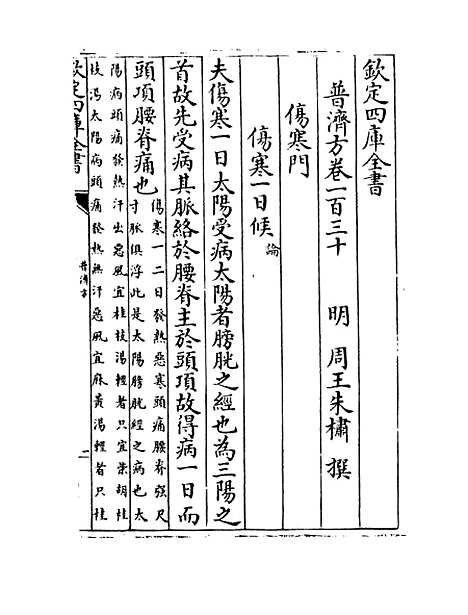 欽定四庫全書
普濟方卷一百三十
明 周王朱橚 撰
傷寒門
傷寒一日候論
夫傷寒一日太陽受病太陽者膀胱之經也為三陽之
首故先受病其脈絡於腰脊主於頭項故得病一日而
頭項腰脊痛也
傷寒一二日發熱惡寒頭痛腰脊强尺
寸脈俱浮此是太陽膀胱經之病也太
陽病頭痛發熱汗出惡風宜桂枝湯輕者只宜柴胡桂
枝湯太陽病頭痛發熱無汗惡風宜麻黃湯輕者只桂
欽定四庫全書
普濟方
一